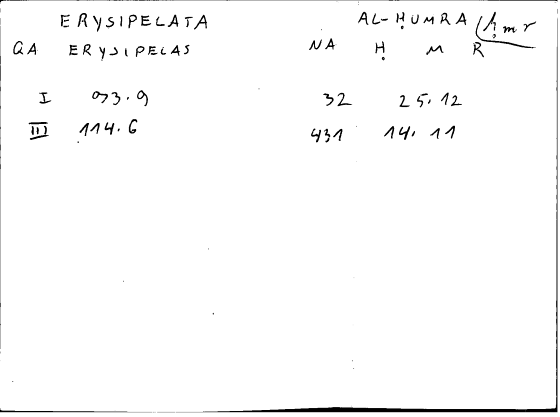 ERYSIPELATA AL-ḤUMRA (ḥmr
GA ERYSIPELAS NA Ḥ M R
I 93.9 32 25.12
III 114.6 431 14.11